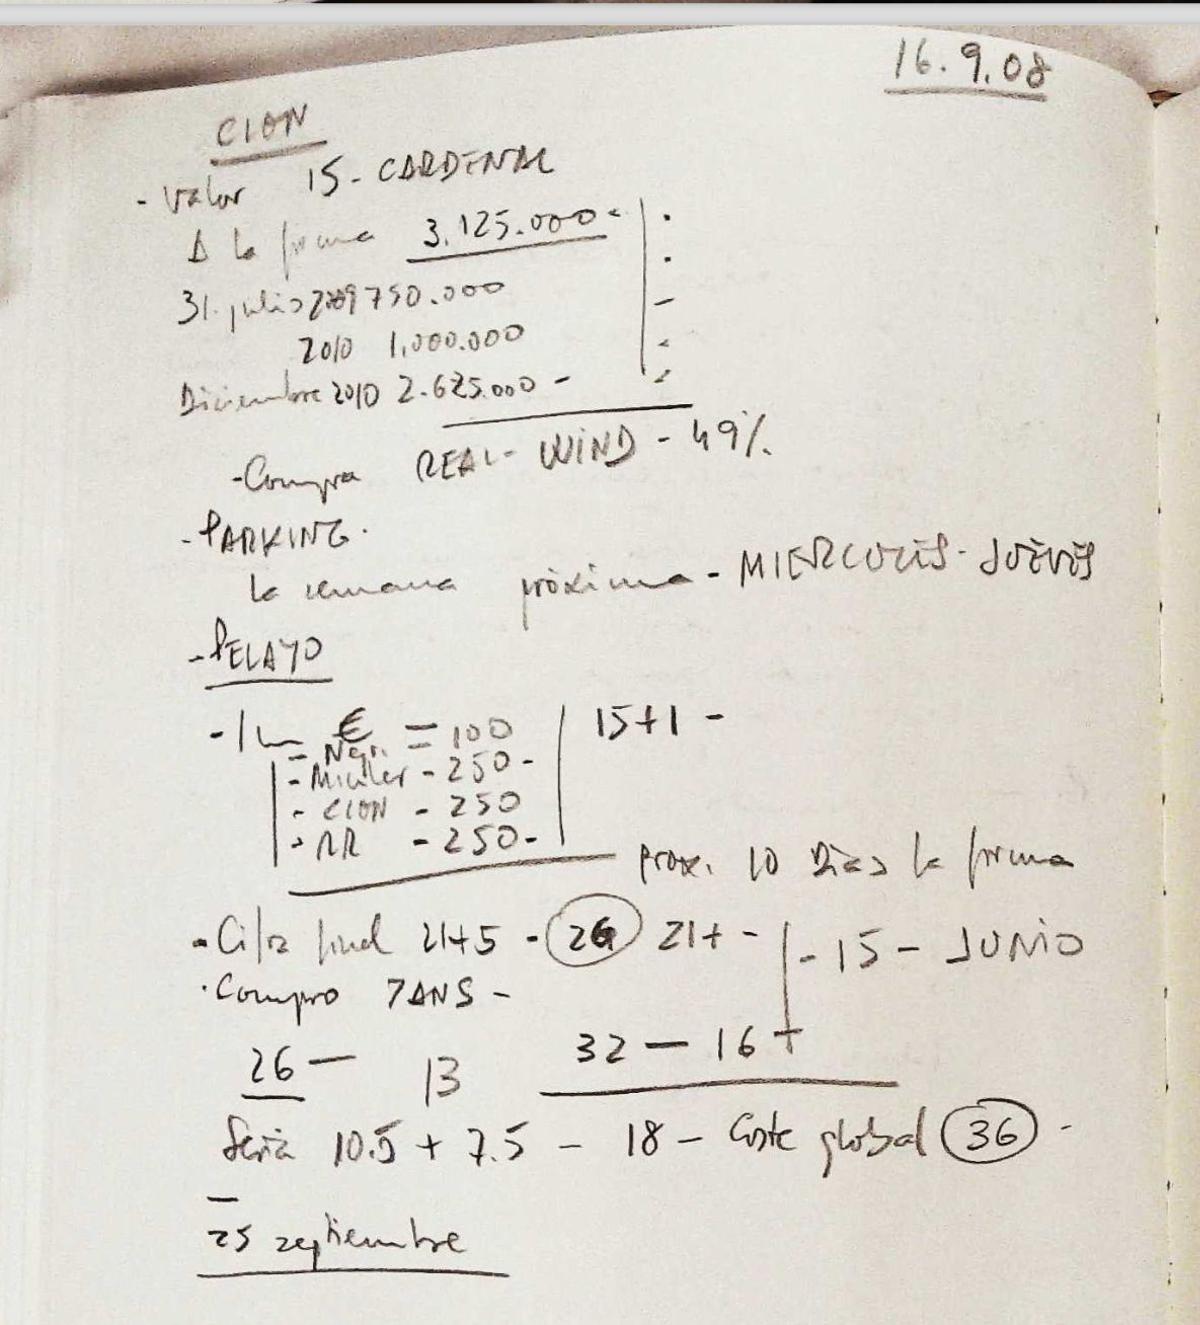 16.9.08
CION
- Valor 15 - CARDENAL
A la firma 3.125.000 -
31 julio 2009 750.000
2010 1.000.000
Diciembre 2010 2.625.000 -
- Compra REAL - WIND - 49%.
- PARKING.
la semana próxima - MIERCOLES - JUEVES
- PELAYO
- 1 € = 100 15+1 -
- Negr. =
- Muller - 250 -
- CION - 250
- RR - 250 -
prox. 10 Dias la firma
- Cifra final 21+5 - 26 21+ - - 15 - JUNIO
· Compro 7ANS -
26 - 13 32 - 16 +
Seria 10.5 + 7.5 - 18 - Coste global 36 -
-
25 septiembre